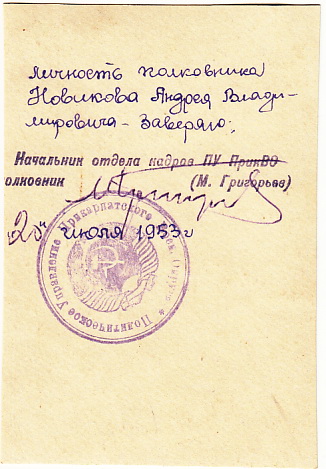 личность полковника
Новикова Андрея Влади-
мировича - Заверяю;
Начальник отдела кадров ПУ ПрикВО
олковник (М. Григорьев)
"20" июля 1953 г
Политическое Управление Прикарпатского Воен. Округа *